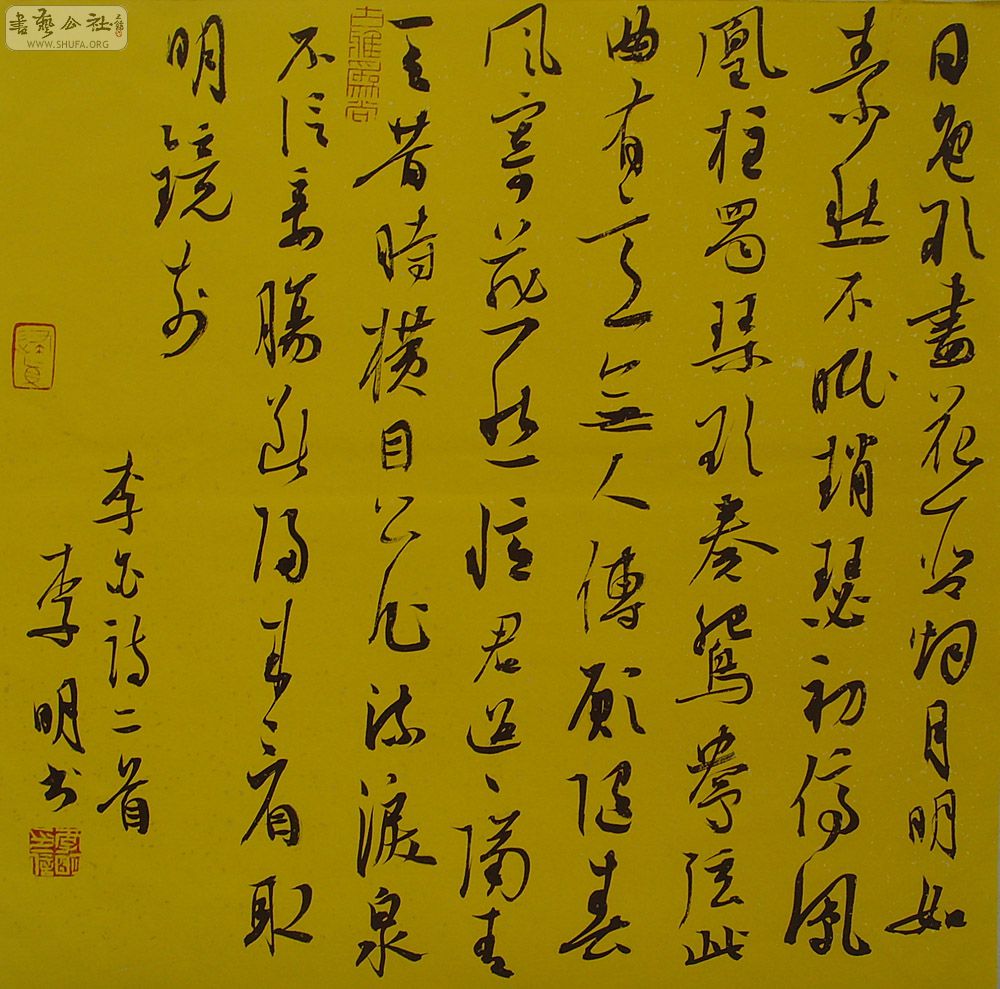 書藝公社
WWW.SHUFA.ORG
日色欲盡花含烟月明如
素愁不眠趙瑟初停鳳
凰柱蜀琴欲奏鴛鴦弦此
曲有意無人傳願隨春
風寄燕然憶君迢迢隔青
天昔時橫目今作流淚泉
不信妾腸斷歸來看取
明鏡前
李白詩二首
李明书